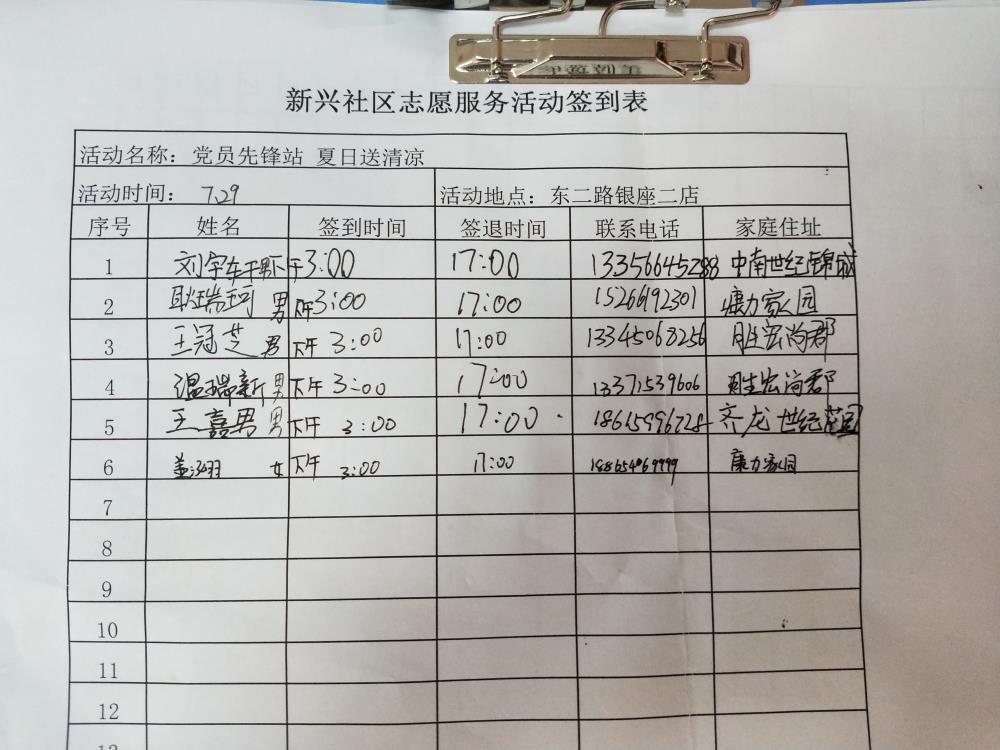 新兴社区志愿服务活动签到表
活动名称：党员先锋站 夏日送清凉
活动时间： 7.29 活动地点：东二路银座二店
序号 姓名 签到时间 签退时间 联系电话 家庭住址
1 刘宇轩 男 下午3:00 17:00 13356645288 中南世纪锦城
2 耿瑞珂 男 下午3:00 17:00 15266192301 康力家园
3 王冠芝 男 下午 3:00 17:00 13345068256 胜宏尚郡
4 温瑞新 男 下午 3:00 17:00 13371539606 胜宏尚郡
5 王嘉男 男 下午 3:00 17:00 18615996728 齐龙世纪花园
6 女 下午 3:00 17:00 康力家园
7
8
9
10
11
12
13